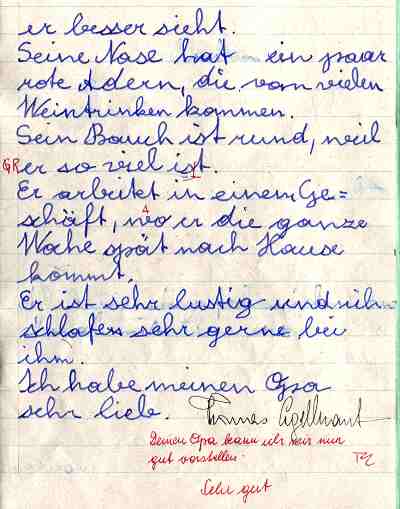 er besser sieht.
Seine Nase hat ein paar
rote Adern, die vom vielen
Weintrinken kommen.
Sein Bauch ist rund, weil
GR er so viel ist.
Er arbeitet in einem Ge=
schäft, wo er die ganze
Woche spät nach Hause
kommt.
Er ist sehr lustig und
schlafen sehr gerne bei
ihm.
Ich habe meinen Opa
sehr lieb. Thomas
Deinen Opa kann ich mir nur
gut vorstellen.
Sehr gut